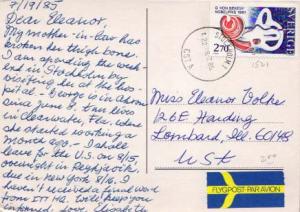 7/19/85
Dear Eleanor,
My mother-in-law has
broken her thigh bone.
I am spending the week
end in Stockholm by
visiting her at the hos-
pital - George is in Ado
since June 8. Eva lives
in Clearwater, Fla. where
she started working a
month ago. - I shall
leave for the U.S. on 8/15,
overnight in Reykjavik,
due in New York 8/16, I
haven't received a final word
from ITT HQ. We'll keep you
informed. Love, Elisabeth
G VON BEKESY
NOBELPRIS 1961
SVERIGE
270
1521
Miss Eleanor
126 E Harding
Lombard, Ill 60148
USA
250
FLYGPOST PAR AVION